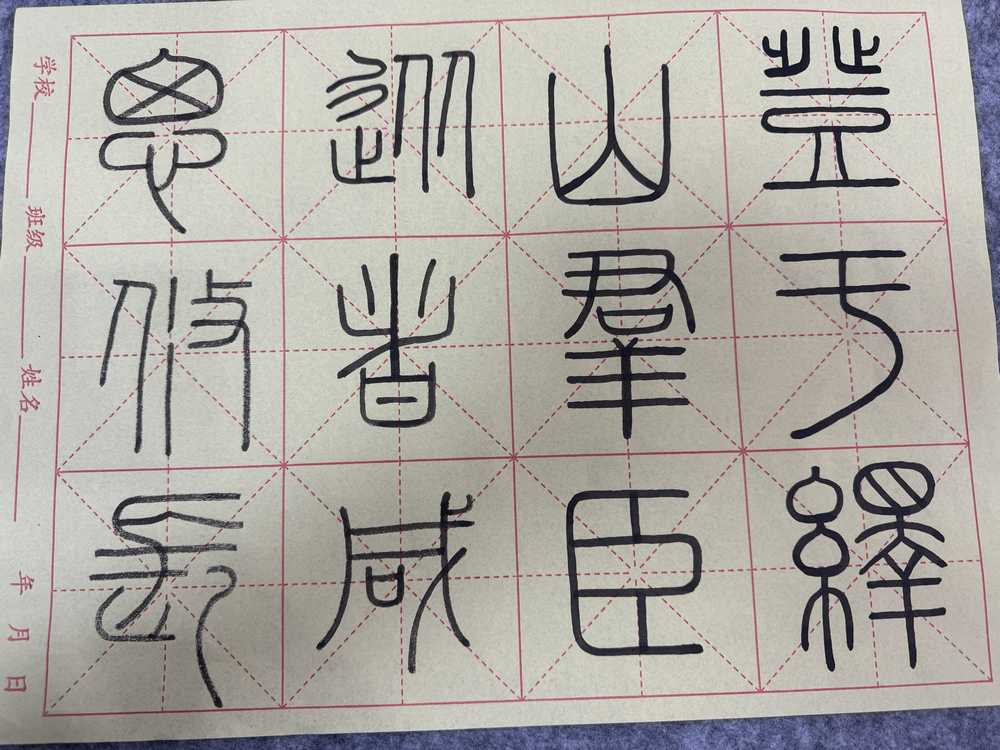 登于繹
山羣臣
從者咸
思攸長
学校 班级 姓名 年 月 日